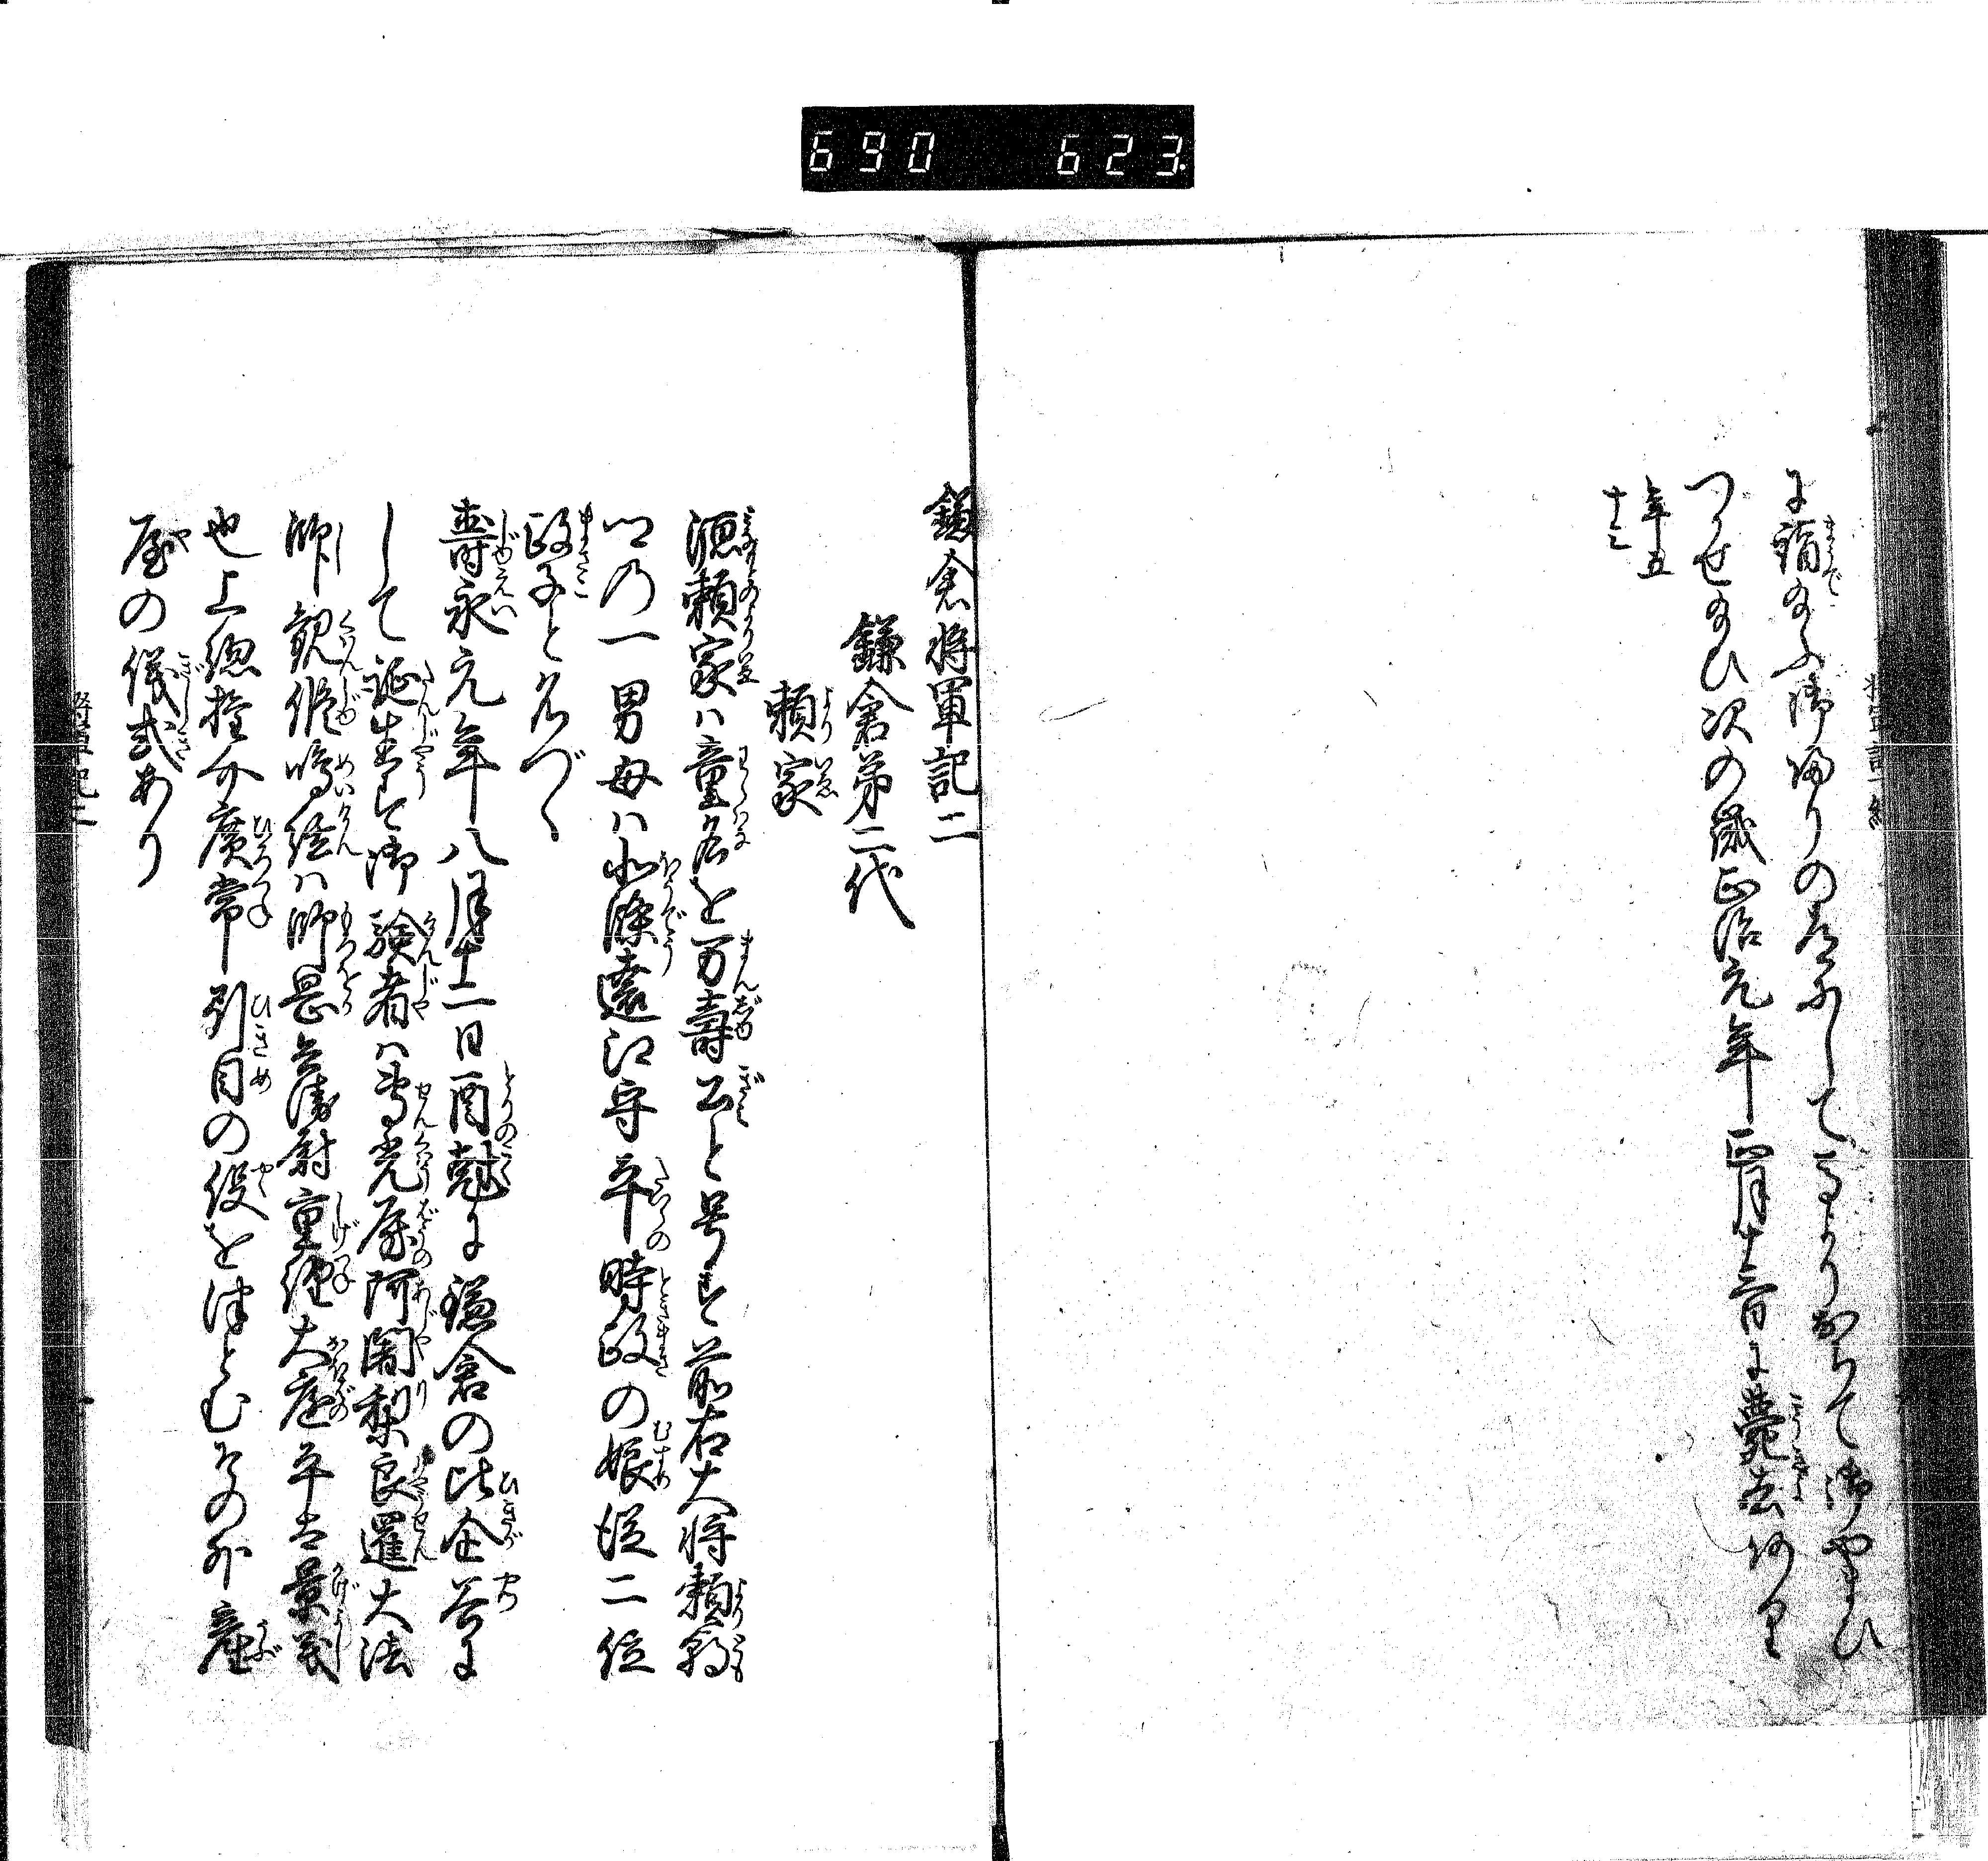 690 623
に詣給ふ御帰りの道にして馬より落て御やまひ
つかせ給ひ次の歳正治元年正月十三日に薨去あり
年五
十三
鎌倉将軍記二
鎌倉第二代
頼家
源頼家ハ童名を万壽公と号す前右大将頼朝
公の一男母ハ北條遠江守平時政の娘従二位
政子と名づく
壽永元年八月十二日酉尅に鎌倉の比企谷に
して誕生す御験者ハ専光房阿闍梨良暹大法
師観修鳴絃ハ師岳兵衛尉重經大庭平太景義
也上総権介廣常引目の役をつとむその外産
屋の儀式あり